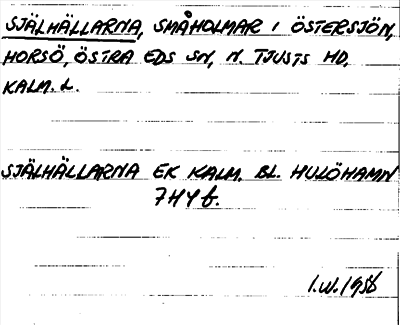 SJÄLHÄLLARNA, SMÅHOLMAR I ÖSTERSJÖN,
HORSÖ, ÖSTRA EDS SN, N. TJUSTS HD,
KALM. L.
SJÄLHÄLLARNA EK KALM. BL. HULÖHAMN
7H4f.
I.W. 1956